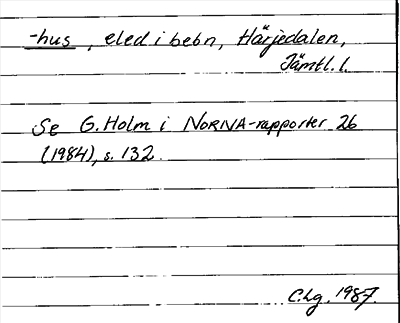 -hus, eled i bebn, Härjedalen,
Jämtl. l.
Se G. Holm i NORNA-rapporter 26
(1984), s. 132.
C.Lg. 1987.